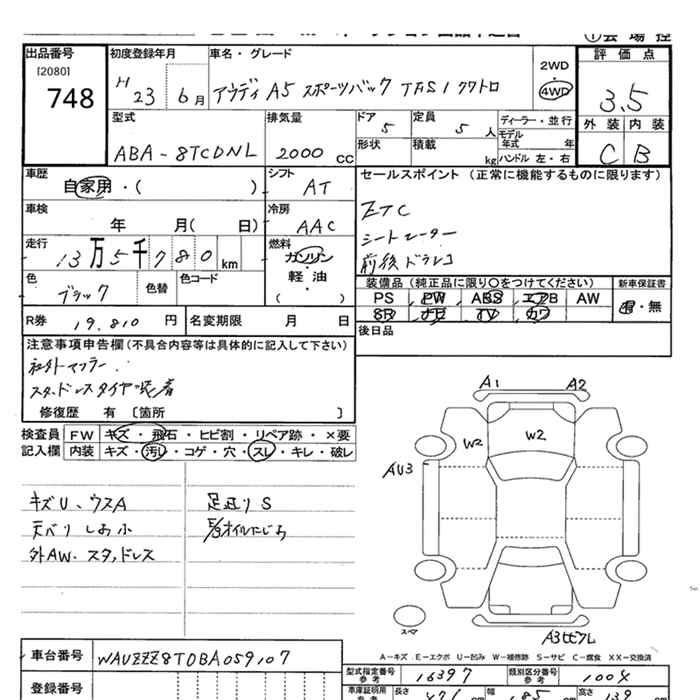 出品番号
[2080]
748
初度登録年月
H 23 6月
車名・グレード
アウディ A5 スポーツバック TFSI クワトロ
2WD
・
4WD
評価点
3.5
外装 内装
C B
型式
ABA-8TCDNL
排気量
2000 CC
ドア
5
定員
5人
形状
積載
kg
ディーラー・並行
モデル
年式 年
ハンドル 左・右
車歴
自家用・( )
シフト
AT
車検
年 月( 日)
冷房
AAC
走行
13万5千780 km
燃料
ガソリン
軽・油
・
( )
色
ブラック
色替
色コード
R券 19,810 円
名変期限 月 日
セールスポイント (正常に機能するものに限ります)
ETC
シートヒーター
前後ドラレコ
装備品 (純正品に限り○をつけてください)
新車保証書
PS PW ABS エアB AW
SR ナビ TV カワ
・無
後日品
注意事項申告欄 (不具合内容等は具体的に記入して下さい)
社外マフラー
スタッドレスタイヤ装着
修復歴 有 〔箇所 〕
検査員
記入欄
FW キズ・飛石・ヒビ割・リペア跡・×要
内装 キズ・汚レ・コゲ・穴・スレ・キレ・破レ
キズU、ウスA
天ベリしみ小
外AW、スタッドレス
足廻りS
E/gオイルにじみ
A1 A2
W2 W2
AU3
スペア
A3ヒビワレ
A－キズ E－エクボ U－凹み W－補修跡 S－サビ C－腐食 XX－交換済
車台番号 WAUZZZ8T0BA059107
登録番号
型式指定番号
参考
16397
類別区分番号
参考
1004
長さ
幅
185
高さ